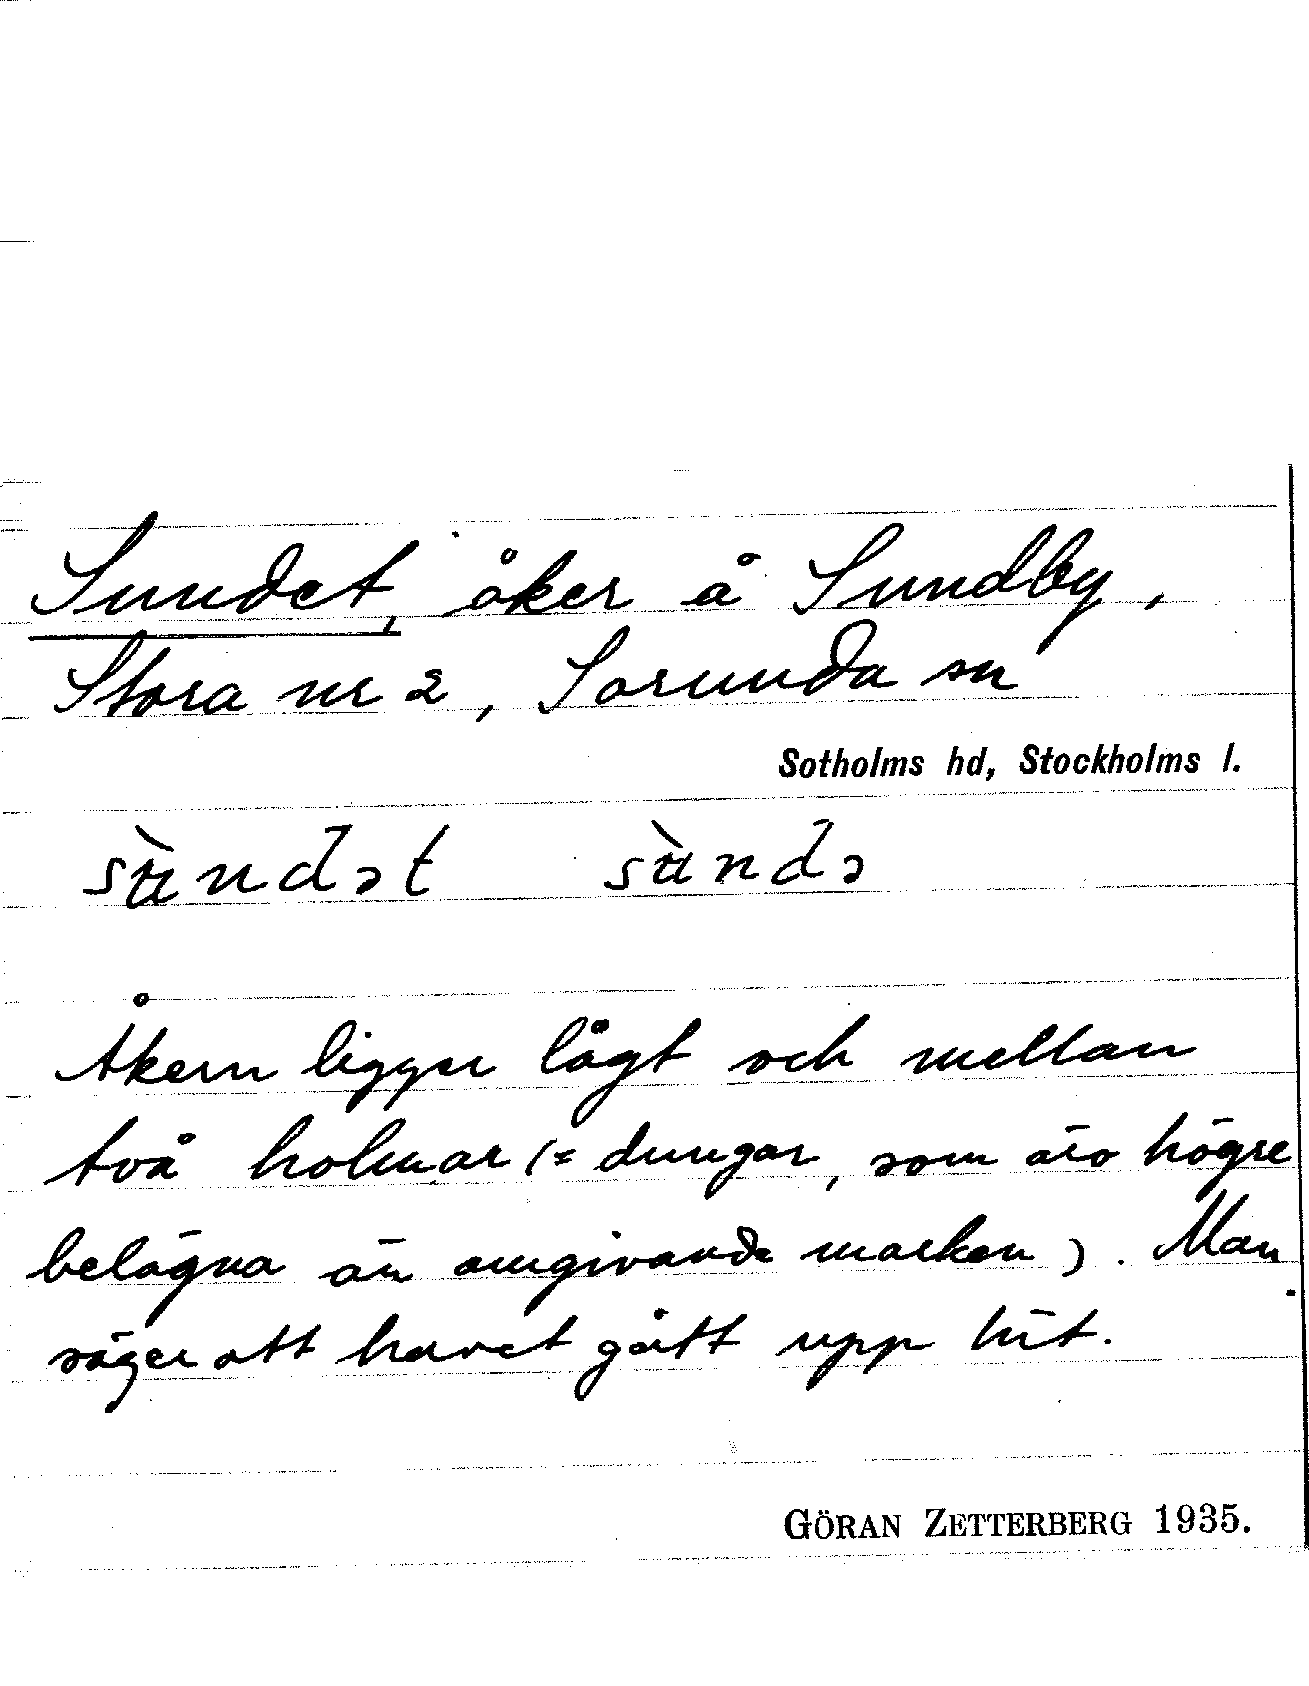 Sundet, åker å Sundby,
Stora nr 2, Sorunda sn
Sotholms hd, Stockholms l.
sùndət sùndə
Åkern ligger lågt och mellan
två holmar (= dungar, som äro högre
belägna än omgivande marken). Man
säger att havet gått upp hit.
GÖRAN ZETTERBERG 1935.